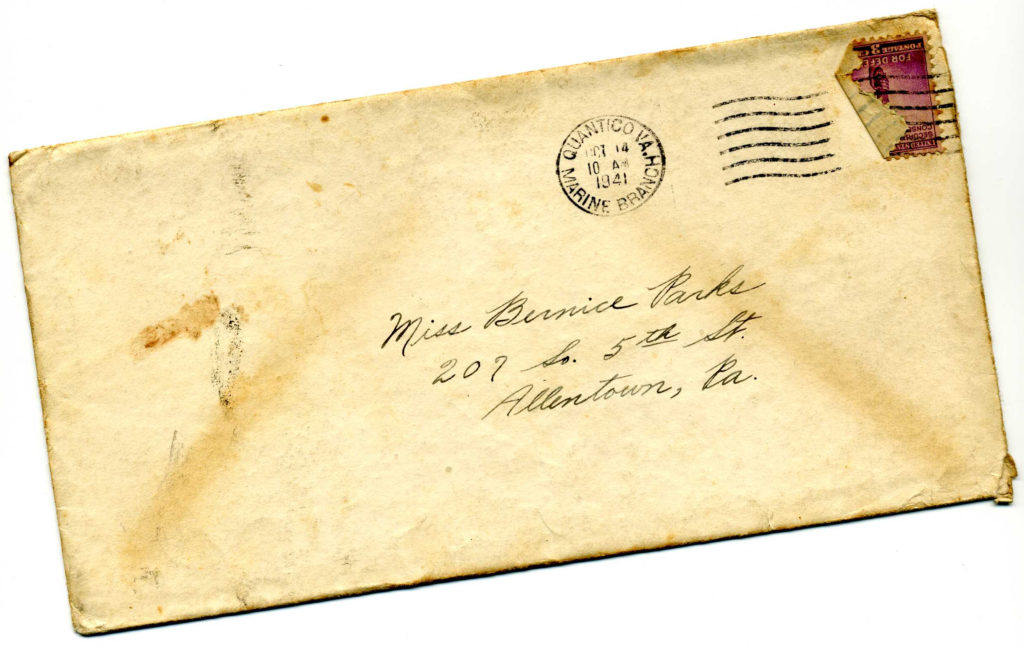 QUANTICO VA.
OCT 14
10 AM
1941
MARINE BRANCH
UNITED STA
SECURIT
CONSE
FOR DEFE
POSTAGE 3¢
Miss Bernice Parks
207 So. 5th St.
Allentown, Pa.